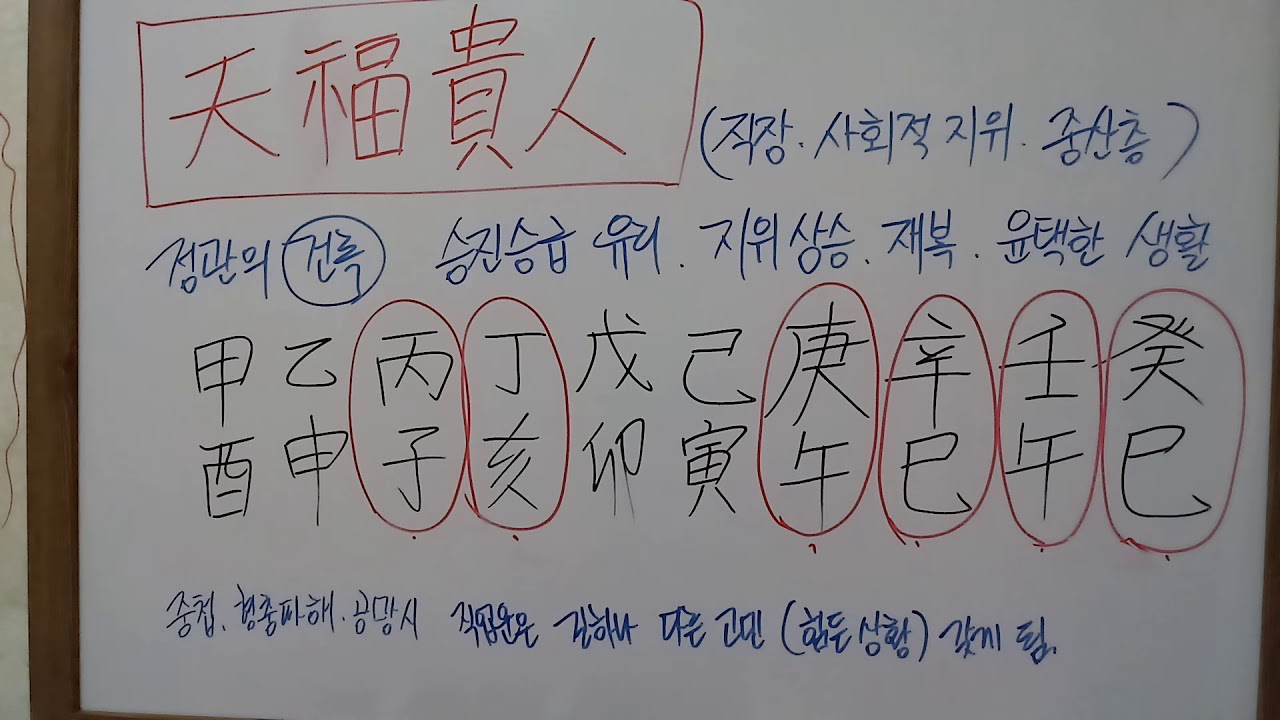 天福貴人
(직장. 사회적 지위. 중산층)
정관의 건록 승진승급 유리. 지위상승. 재복. 윤택한 생활
甲 乙 丙 丁 戊 己 庚 辛 壬 癸
酉 申 子 亥 卯 寅 午 巳 午 巳
중첩. 형충파해. 공망시 직업운은 길하나 다른 고민 (힘든 상황) 갖게 됨.